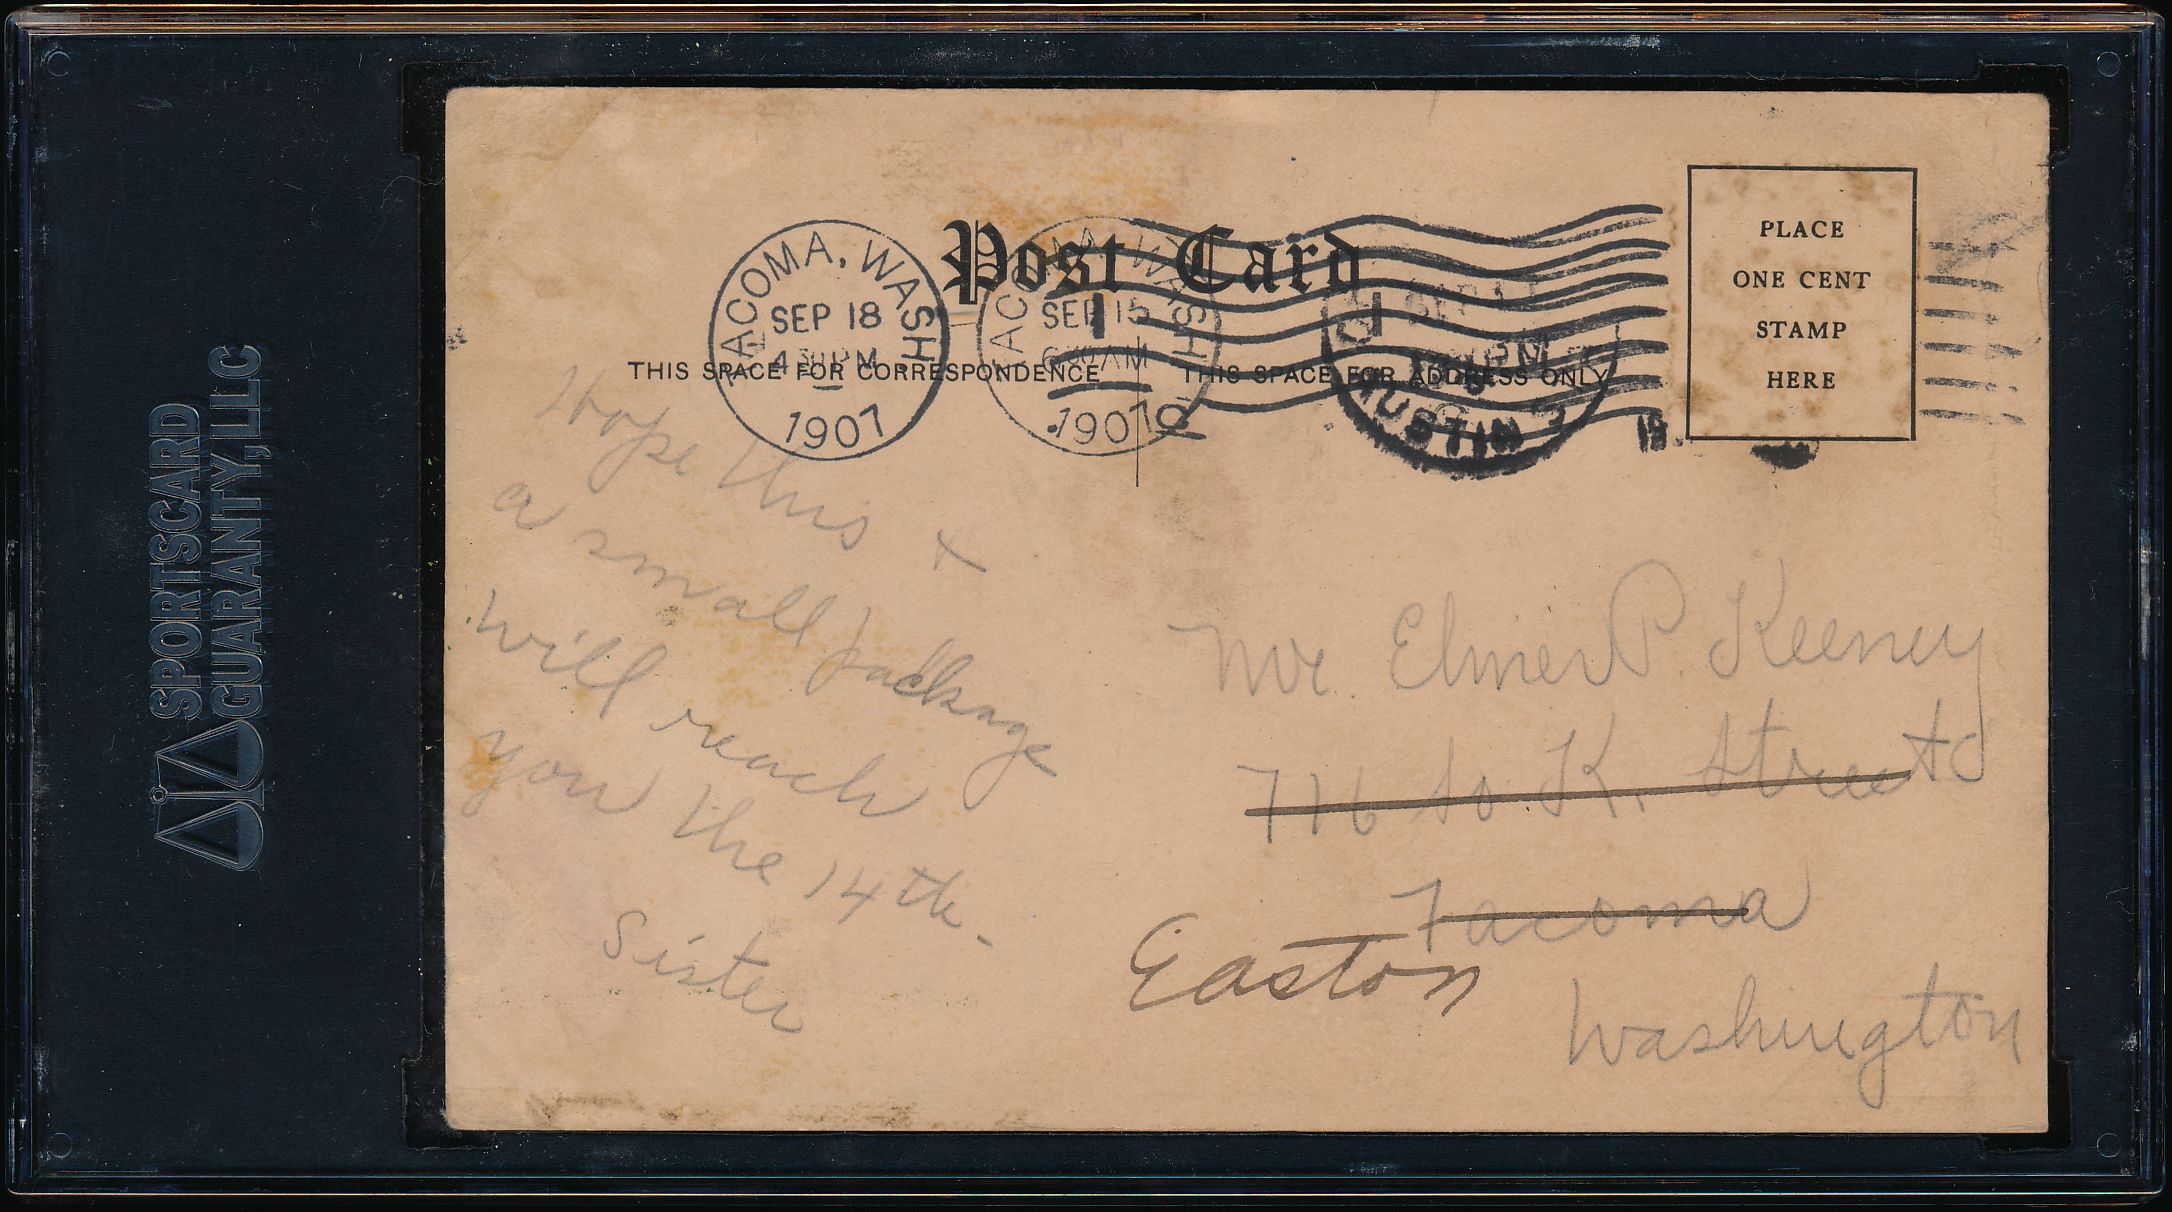 SPORTSCARD
GUARANTY, LLC
Post Card
PLACE
ONE CENT
STAMP
HERE
TACOMA, WASH.
SEP 18
4 30 PM
1907
TACOMA, WASH.
SEP 15
6 30 AM
1907
SEP
AUSTIN
THIS SPACE FOR CORRESPONDENCE
THIS SPACE FOR ADDRESS ONLY
Hope this +
a small package
will reach
you the 14th-
Sister
Mr. Elmer P. Keeney
716 So. K. Street
Tacoma
Easton
Washington